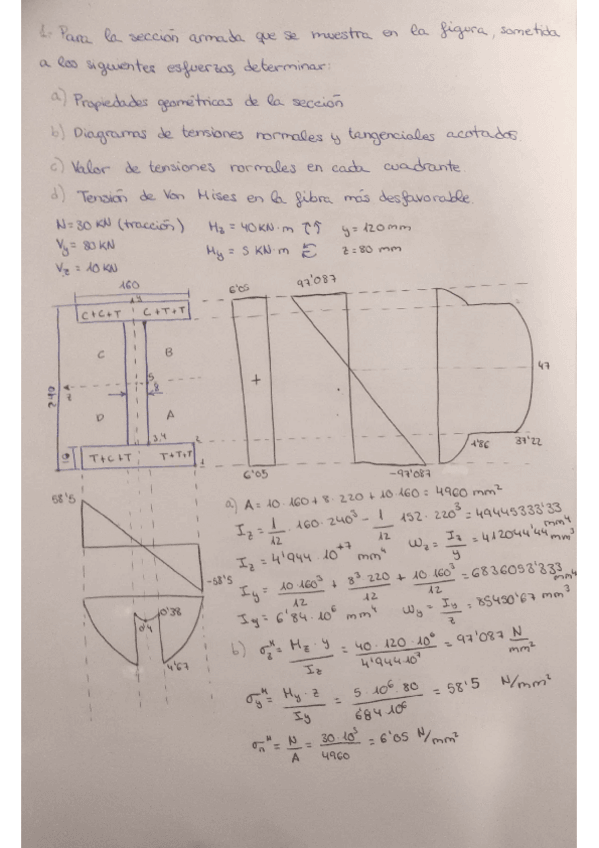 1- Para la sección armada que se muestra en la figura, sometida
a los siguientes esfuerzos, determinar:
a) Propiedades geométricas de la sección
b) Diagramas de tensiones normales y tangenciales acotados.
c) Valor de tensiones normales en cada cuadrante.
d) Tensión de Von Mises en la fibra más desfavorable.
N=30 KN (tracción) Mz = 40 KN·m y = 120 mm
Vy = 80 KN My = 5 KN·m z = 80 mm
Vz = 10 KN
160 6'05 97'087
C+C+T C+T+T
C B
240 z 5 8 + 47
D A
3,4 2
10 T+C+T T+T+T 1
4'86 37'22
6'05 -97'087
58'5
-58'5
0'4 0'38
4'67
a) A = 10·160 + 8·220 + 10·160 = 4960 mm²
Iz = 1/12 · 160·240³ - 1/12 · 152·220³ = 49445333'33 mm⁴
Iz = 4'944·10⁺⁷ mm⁴ Wz = Iz/y = 412044'44 mm³
Iy = 10·160³/12 + 8³·220/12 + 10·160³/12 = 6836053'333 mm⁴
Iy = 6'84·10⁶ mm⁴ Wy = Iy/z = 85450'67 mm³
b) σzᴹ = Mz·y/Iz = 40·120·10⁶/4'944·10⁷ = 97'087 N/mm²
σyᴹ = My·z/Iy = 5·10⁶·80/6'84·10⁶ = 58'5 N/mm²
σnᴺ = N/A = 30·10³/4960 = 6'05 N/mm²